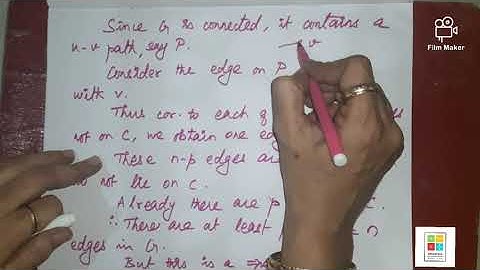 Since G is connected, it contains a
u-v path, say P. v
Consider the edge on P
with v.
Thus cor. to each of
not on C, we obtain one
These n-p edges are
do not lie on C.
Already there are p C.
∴ There are at least = n
edges in G.
But this is a
Film Maker